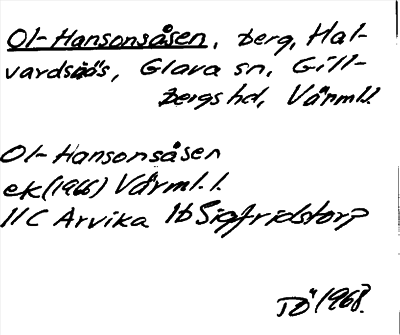 Ol-Hansonsåsen, berg, Hal-
vardsås, Glava sn, Gill-
bergs hd, Värml.
Ol-Hansonsåsen
ek (1966) Värml. l.
11 C Arvika 1b Sigfridstorp
TÖ 1968.